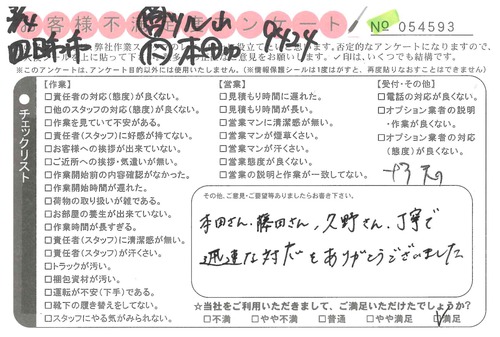 お客様不満足度アンケート
№ 054593
3/14
四日市
9424
※このアンケートは、アンケート目的以外には使用いたしません。（※情報保護シールは1度がすと、再度貼りなおすことはできません）
チェックリスト
【作業】
□責任者の対応（態度）が良くない。
□他のスタッフの対応（態度）が良くない。
□作業を見ていて不安がある。
□責任者（スタッフ）に好感が持てない。
□お客様への挨拶が出来ていない。
□ご近所への挨拶・気遣いが無い。
□作業開始前の内容確認がなかった。
□作業開始時間が遅れた。
□荷物の取り扱いが雑である。
□お部屋の養生が出来ていない。
□作業時間が長すぎる。
□責任者（スタッフ）に清潔感が無い。
□責任者（スタッフ）が汗くさい。
□トラックが汚い。
□梱包資材が汚い。
□運転が不安（下手）である。
□靴下の履き替えをしてない。
□スタッフにやる気がみられない。
【営業】
□見積もり時間に遅れた。
□見積もり時間が長い。
□営業マンに清潔感が無い。
□営業マンが煙草くさい。
□営業マンが汗くさい。
□営業態度が良くない。
□営業の説明と作業が一致してない。
【受付・その他】
□電話の対応が良くない。
□オプション業者の説明
・作業が良くない。
□オプション業者の対応
（態度）が良くない。
その他、ご意見・ご要望等ありましたらお書き下さい。
本田さん、藤田さん、久野さん、丁寧で
迅速な対応をありがとうございました
☆当社をご利用いただきまして、ご満足いただけたでしょうか？
□不満 □やや不満 □普通 □やや満足 □満足